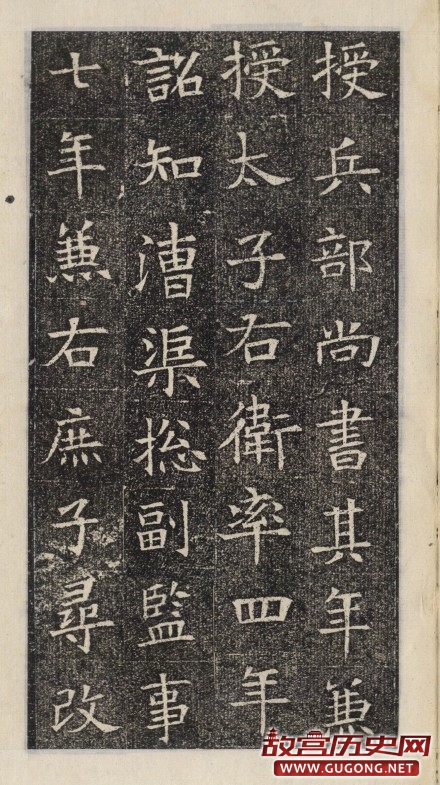 授兵部尚書其年兼
授太子右衛率四年
詔知漕渠揔副監事
七年兼右庶子尋改
故宫历史网
WWW.GUGONG.NET